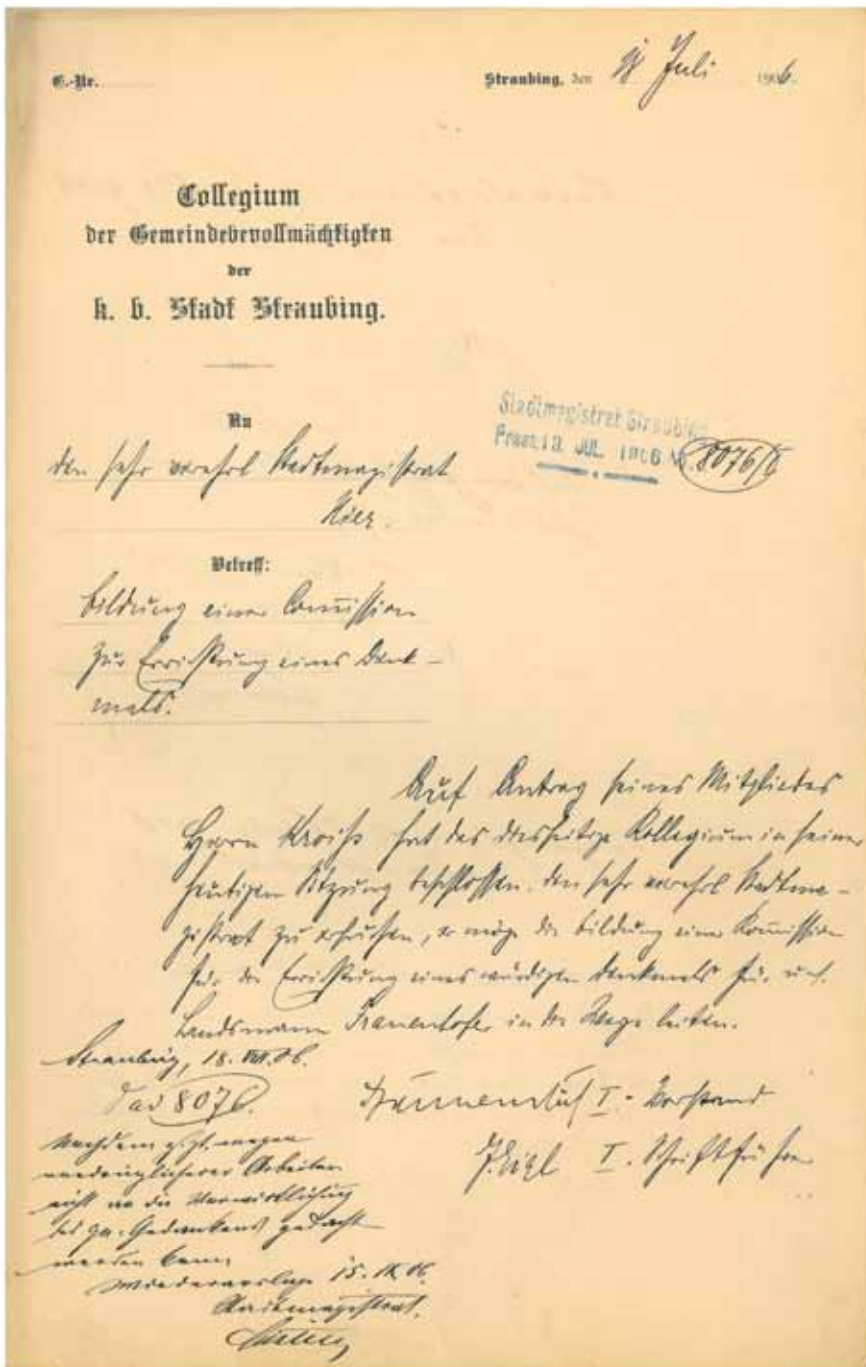 E.-Nr.
Straubing, den Juli 1906.
Collegium
der Gemeindebevollmächtigten
der
k. b. Stadt Straubing.
An
den sehr verehrl Stadtmagistrat
Hier.
Stadtmagistrat Straubing
Praes. 13 JUL. 1906 Nr. 8076/6
Betreff:
Bildung einer Comission
zur Errichtung eines Denk-
mals.
Auf Antrag seines Mitgliedes
Herrn Kroiß hat das diesseitige Kollegium in seiner
heutigen Sitzung beschlossen, den sehr verehrl Stadtma-
gistrat zu ersuchen, er möge die Bildung einer Komission
für die Errichtung eines würdigen Denkmals für uns.
Landsmann Frauenhofer in die Wege leiten.
Straubing, 18. VII. 06.
ad 8076.
I. Vorstand
I. Schriftführer
Nachdem z. Zt. wegen
vordringlicherer Arbeiten
nicht an die Verwirklichung
des Gedankens gedacht
werden kann,
Wiedervorlage 15. IX. 06.
Stadtmagistrat.